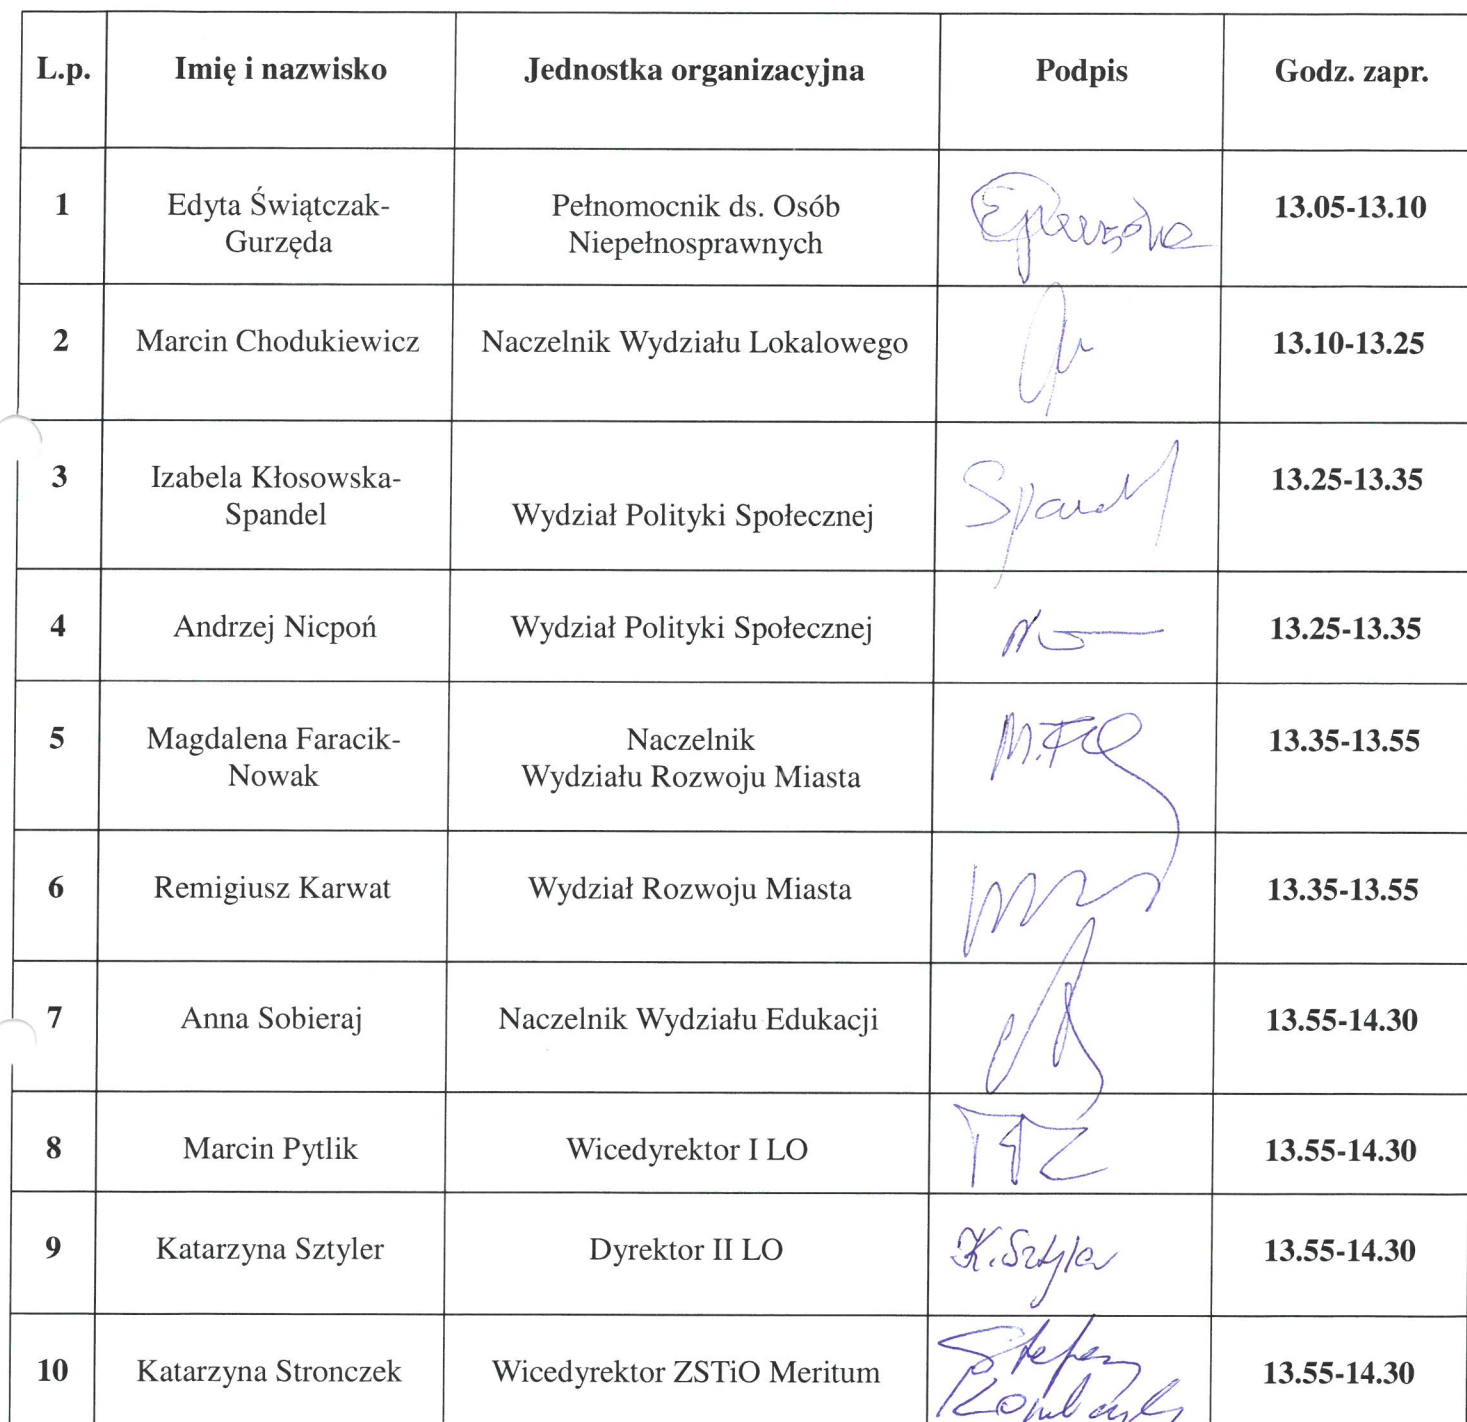 L.p. Imię i nazwisko Jednostka organizacyjna Podpis Godz. zapr.
1 Edyta Świątczak- Pełnomocnik ds. Osób 13.05-13.10
Gurzęda Niepełnosprawnych
2 Marcin Chodukiewicz Naczelnik Wydziału Lokalowego 13.10-13.25
3 Izabela Kłosowska- 13.25-13.35
Spandel Wydział Polityki Społecznej Spandel
4 Andrzej Nicpoń Wydział Polityki Społecznej 13.25-13.35
5 Magdalena Faracik- Naczelnik 13.35-13.55
Nowak Wydziału Rozwoju Miasta
6 Remigiusz Karwat Wydział Rozwoju Miasta 13.35-13.55
7 Anna Sobieraj Naczelnik Wydziału Edukacji 13.55-14.30
8 Marcin Pytlik Wicedyrektor I LO 13.55-14.30
9 Katarzyna Sztyler Dyrektor II LO K. Sztyler 13.55-14.30
10 Katarzyna Stronczek Wicedyrektor ZSTiO Meritum 13.55-14.30